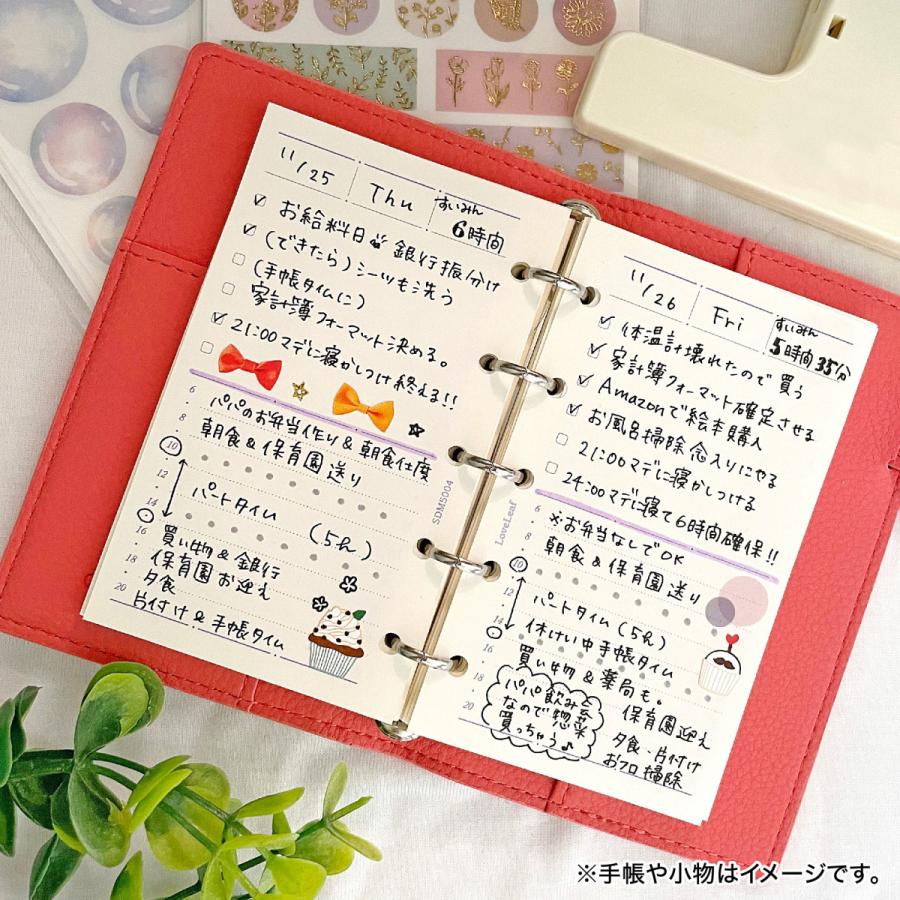 11/25
Thu
すいみん
6時間
お給料日 銀行振分け
(できたら)シーツも洗う
(手帳タイムに)
家計簿フォーマット決める。
21:00マデに寝かしつけ終える!!
6
パパのお弁当作り & 朝食仕度
8
朝食 & 保育園送り
10
12
パートタイム (5h)
14
16
買い物 & 銀行
保育園お迎え
18
夕食
20
片付け & 手帳タイム
SDM5004
11/26
Fri
すいみん
5時間35分
体温計壊れたので買う
家計簿フォーマット確定させる
Amazonで絵本購入
お風呂掃除念入りにやる
21:00マデに寝かしつける
24:00マデに寝て6時間確保!!
6
※お弁当なしでOK
8
朝食 & 保育園送り
10
12
パートタイム (5h)
14
休けい中手帳タイム
16
買い物 & 薬局も。
18
保育園迎え
20
夕食・片付け
おフロ掃除
パパ飲み会
なので惣菜
買っちゃう♪
LoveLeaf
※手帳や小物はイメージです。